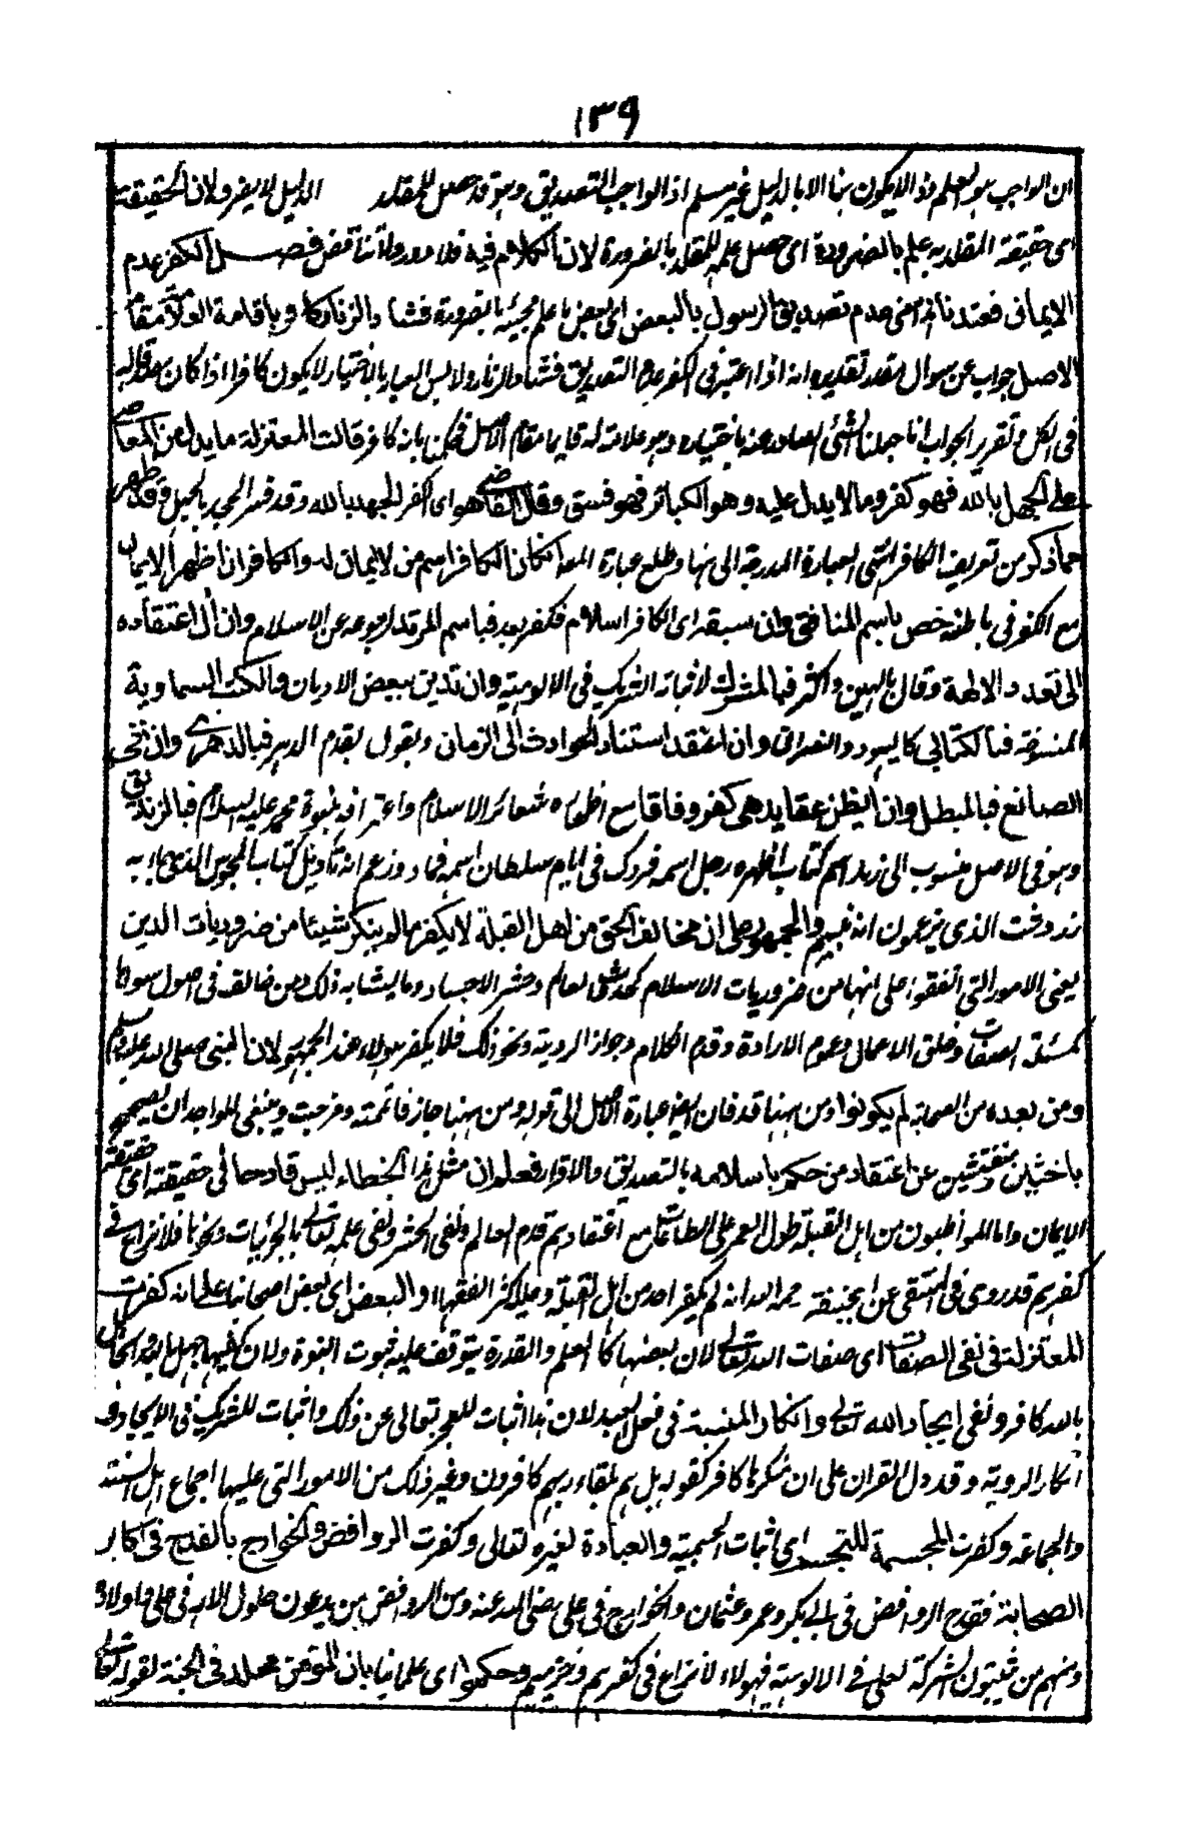 ١٣٩
ان الواجب هو العلم وذا لا يكون بنا الا بالدليل غير مسلم اذ الواجب التصديق وهو قد حصل للمقلد الدليل لا يضر ولان الحقيقة
اى حقيقة المقلد به علم بالضرورة اى حصل علمه للمقلد بالضرورة لان الكلام فيه فلا دور ولا تناقض فصل الكفر عدم
الايمان فعندنا عدم تصديق الرسول بالبعض اى بعض ما علم مجيئه بالضرورة فشاد الزنار وباقامة العلامة مقام
الاصل جواب عن سوال مقدر تقديره انه اذا اعتبر فى الكفر عدم التصديق فشاد الزنار ولابس الغيار بالاختيار لا يكون كافرا اذا كان مصدقا له
فى الكل وتقرير الجواب انا جعلنا الشئ الصادر عنه باختياره وهو علامة له قايما مقام الاصل فحكمنا بانه كافر قالت المعتزلة ما يدل من المعاصى
على الجهل بالله فهو كفر وما لا يدل عليه وهو الكبائر فهو فسق وقال القاضى هو اى الكفر الجهل بالله وقد فسر الجحد بالجهل وقد ظهر
مما ذكر من تعريف الكافر انتهى العبارة المدرجة الى نهنا ومطلع عبارة المص ان الكافر اسم من لا ايمان له والكافر ان اظهر الايمان
مع الكفر فى باطنه خص باسم المنافق وان سبقه اى الكافر اسلام فكفر بعد فباسم المرتد لرجوعه عن الاسلام وان ال اعتقاده
الى تعدد الالهة وقال بالهين واكثر فبالمشرك لاثباته الشريك فى الالوهية وان تدين ببعض الاديان والكتب السماوية
المنسوخة فبالكتابى كاليهود والنصرانى وان اعتقد استناد الحوادث الى الزمان ويقول بقدم الدهر فبالدهرى وان نفى
الصانع فبالمعطل وان ابطن عقايد هى كفر وفاقا مع اظهاره شعائر الاسلام واعترافه بنبوة محمد عليه السلام فبالزنديق
وهو فى الاصل منسوب الى زند اسم كتاب اظهره رجل اسمه فردك فى ايام سلطان اسمه قباد وزعم انه تاويل كتاب المجوس الذى جاء به
زردشت الذى يزعمون انه نبيهم والجمهور على ان مخالف الحق من اهل القبلة لا يكفر ما لم ينكر شيئا من ضروريات الدين
يعنى الامور التى اتفقوا على انها من ضروريات الاسلام كحدوث العالم وحشر الاجساد وما يشابه ذلك ومن خالف فى اصول سواها
كمسئلة الصفات وخلق الاعمال وعموم الارادة وقدم الكلام وجواز الروية ونحو ذلك فلا يكفر هولاء عند الجمهور لان النبى صلى الله عليه وسلم
ومن بعده من الصحابة لم يكونوا ومن ههنا قد فات ايضا عبارة الاصل الى قوله ومن ههنا جاز فاتمته ومزجت وينبغى للواجد ان يصححه
باحثين مفتشين عن اعتقاد من حكم باسلامه بالتصديق والاقرار فعلم ان مثل هذا الخطاء ليس قادحا فى حقيقته اى حقيقة
الايمان واما المواظبون من اهل القبلة طول العمر على الطاعات مع اعتقادهم قدم العالم ونفى الحشر ونفى علمه تعالى بالجزئيات ونحوها فلا نزاع فى
كفرهم قد روى فى المنتقى عن ابى حنيفة رحمه الله انه لم يكفر احد من اهل القبلة وعليه اكثر الفقهاء والبعض اى بعض اصحابنا على انه كفرت
المعتزلة فى نفى الصفات اى صفات الله تعالى لان بعضها كالعلم والقدرة يتوقف عليه ثبوت النبوة ولان نفيها جهل بالله والجاهل
بالله كافر ونفى ايجاد الله تعالى وانكار المشية فى فعل العبد لان هذا اثبات للعجز تعالى عن ذلك واثبات للشريك فى الايجاد و
انكار الروية وقد دل القران على ان منكرها كافر كقوله بل هم بلقاء ربهم كافرون وغير ذلك من الامور التى عليها اجماع اهل السنة
والجماعة وكفرت المجسمة للتجسد اى اثبات الجسمية والعبادة لغيره تعالى وكفرت الروافض والخوارج بالقدح فى اكابر
الصحابة فقدح الروافض فى ابى بكر وعمر وعثمان والخوارج فى على رضى الله عنه ومن الروافض من يدعون حلول الاله فى على واولاده
ومنهم من يثبتون الشركة لعلى فى الالوهية فهولاء لا نزاع فى كفرهم وخزيهم وحكموا اى علمائنا بان المؤمن مخلد فى الجنة لقوله تعالى